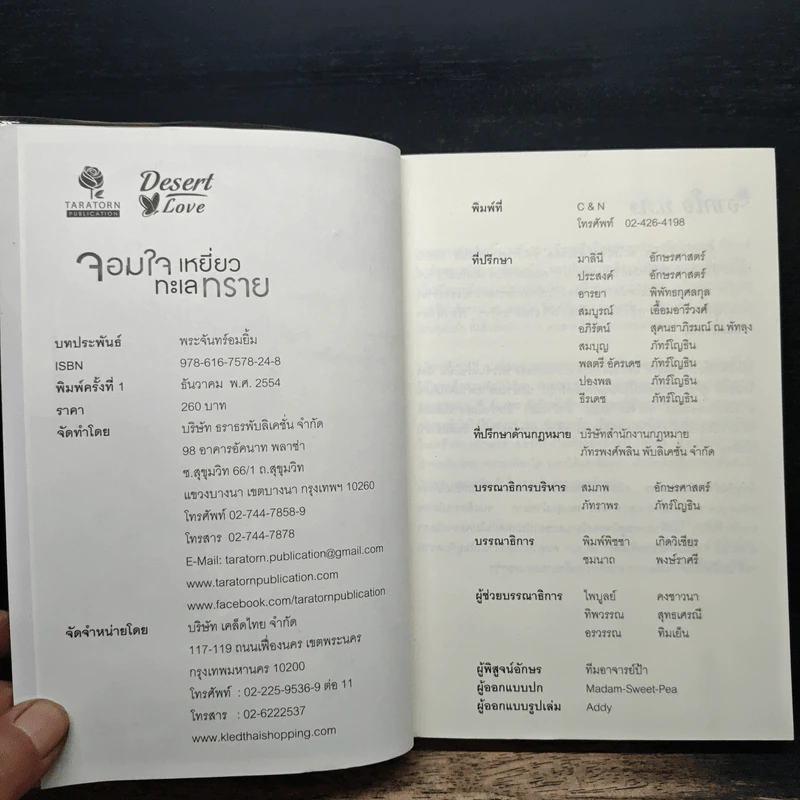 TARATORN
PUBLICATION
Desert
Love
จอมใจเหยี่ยว
ทะเลทราย
บทประพันธ์ พระจันทร์อมยิ้ม
ISBN 978-616-7578-24-8
พิมพ์ครั้งที่ 1 ธันวาคม พ.ศ. 2554
ราคา 260 บาท
จัดทำโดย บริษัท ธราธรพับลิเคชั่น จำกัด
98 อาคารอัคนาท พลาซ่า
ซ.สุขุมวิท 66/1 ถ.สุขุมวิท
แขวงบางนา เขตบางนา กรุงเทพฯ 10260
โทรศัพท์ 02-744-7858-9
โทรสาร 02-744-7878
E-Mail: taratorn.publication@gmail.com
www.taratornpublication.com
www.facebook.com/taratornpublication
จัดจำหน่ายโดย บริษัท เคล็ดไทย จำกัด
117-119 ถนนเฟื่องนคร เขตพระนคร
กรุงเทพมหานคร 10200
โทรศัพท์ : 02-225-9536-9 ต่อ 11
โทรสาร : 02-6222537
www.kledthaishopping.com
พิมพ์ที่ C & N
โทรศัพท์ 02-426-4198
ที่ปรึกษา มาลินี อักษรศาสตร์
ประสงค์ อักษรศาสตร์
อารยา พิพัทธกุศลกุล
สมบูรณ์ เอื้อมอารีวงศ์
อภิรัตน์ สุคนธาภิรมณ์ ณ พัทลุง
สมบุญ ภัทร์โญธิน
พลตรี อัครเดช ภัทร์โญธิน
ปองพล ภัทร์โญธิน
ธีรเดช ภัทร์โญธิน
ที่ปรึกษาด้านกฎหมาย บริษัทสำนักงานกฎหมาย
ภัทรพงศ์พลิน พับลิเคชั่น จำกัด
บรรณาธิการบริหาร สมภพ อักษรศาสตร์
ภัทราพร ภัทร์โญธิน
บรรณาธิการ พิมพ์พิชชา เกิดวิเชียร
ชมนาถ พงษ์ราศรี
ผู้ช่วยบรรณาธิการ ไพบูลย์ คงชาวนา
ทิพวรรณ สุทธเศรณี
อรวรรณ ทิมเย็น
ผู้พิสูจน์อักษร ทีมอาจารย์ป้า
ผู้ออกแบบปก Madam-Sweet-Pea
ผู้ออกแบบรูปเล่ม Addy